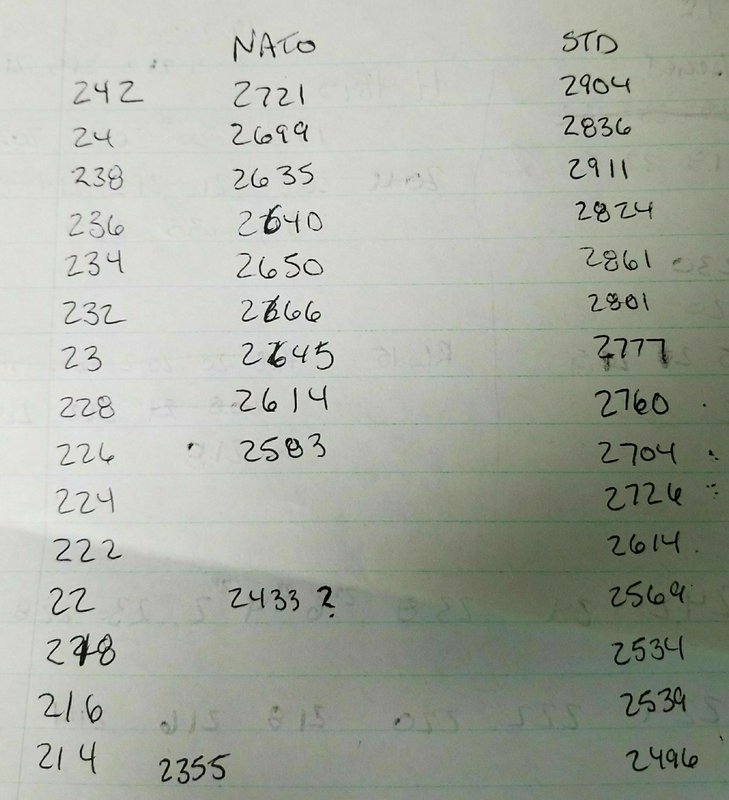 NATO STD
242 2721 2904
24 2699 2836
238 2635 2911
236 2640 2824
234 2650 2861
232 2666 2801
23 2645 2777
228 2614 2760
226 2583 2704
224 2726
222 2614
22 2433 ? 2569
218 2534
216 2539
214 2355 2496